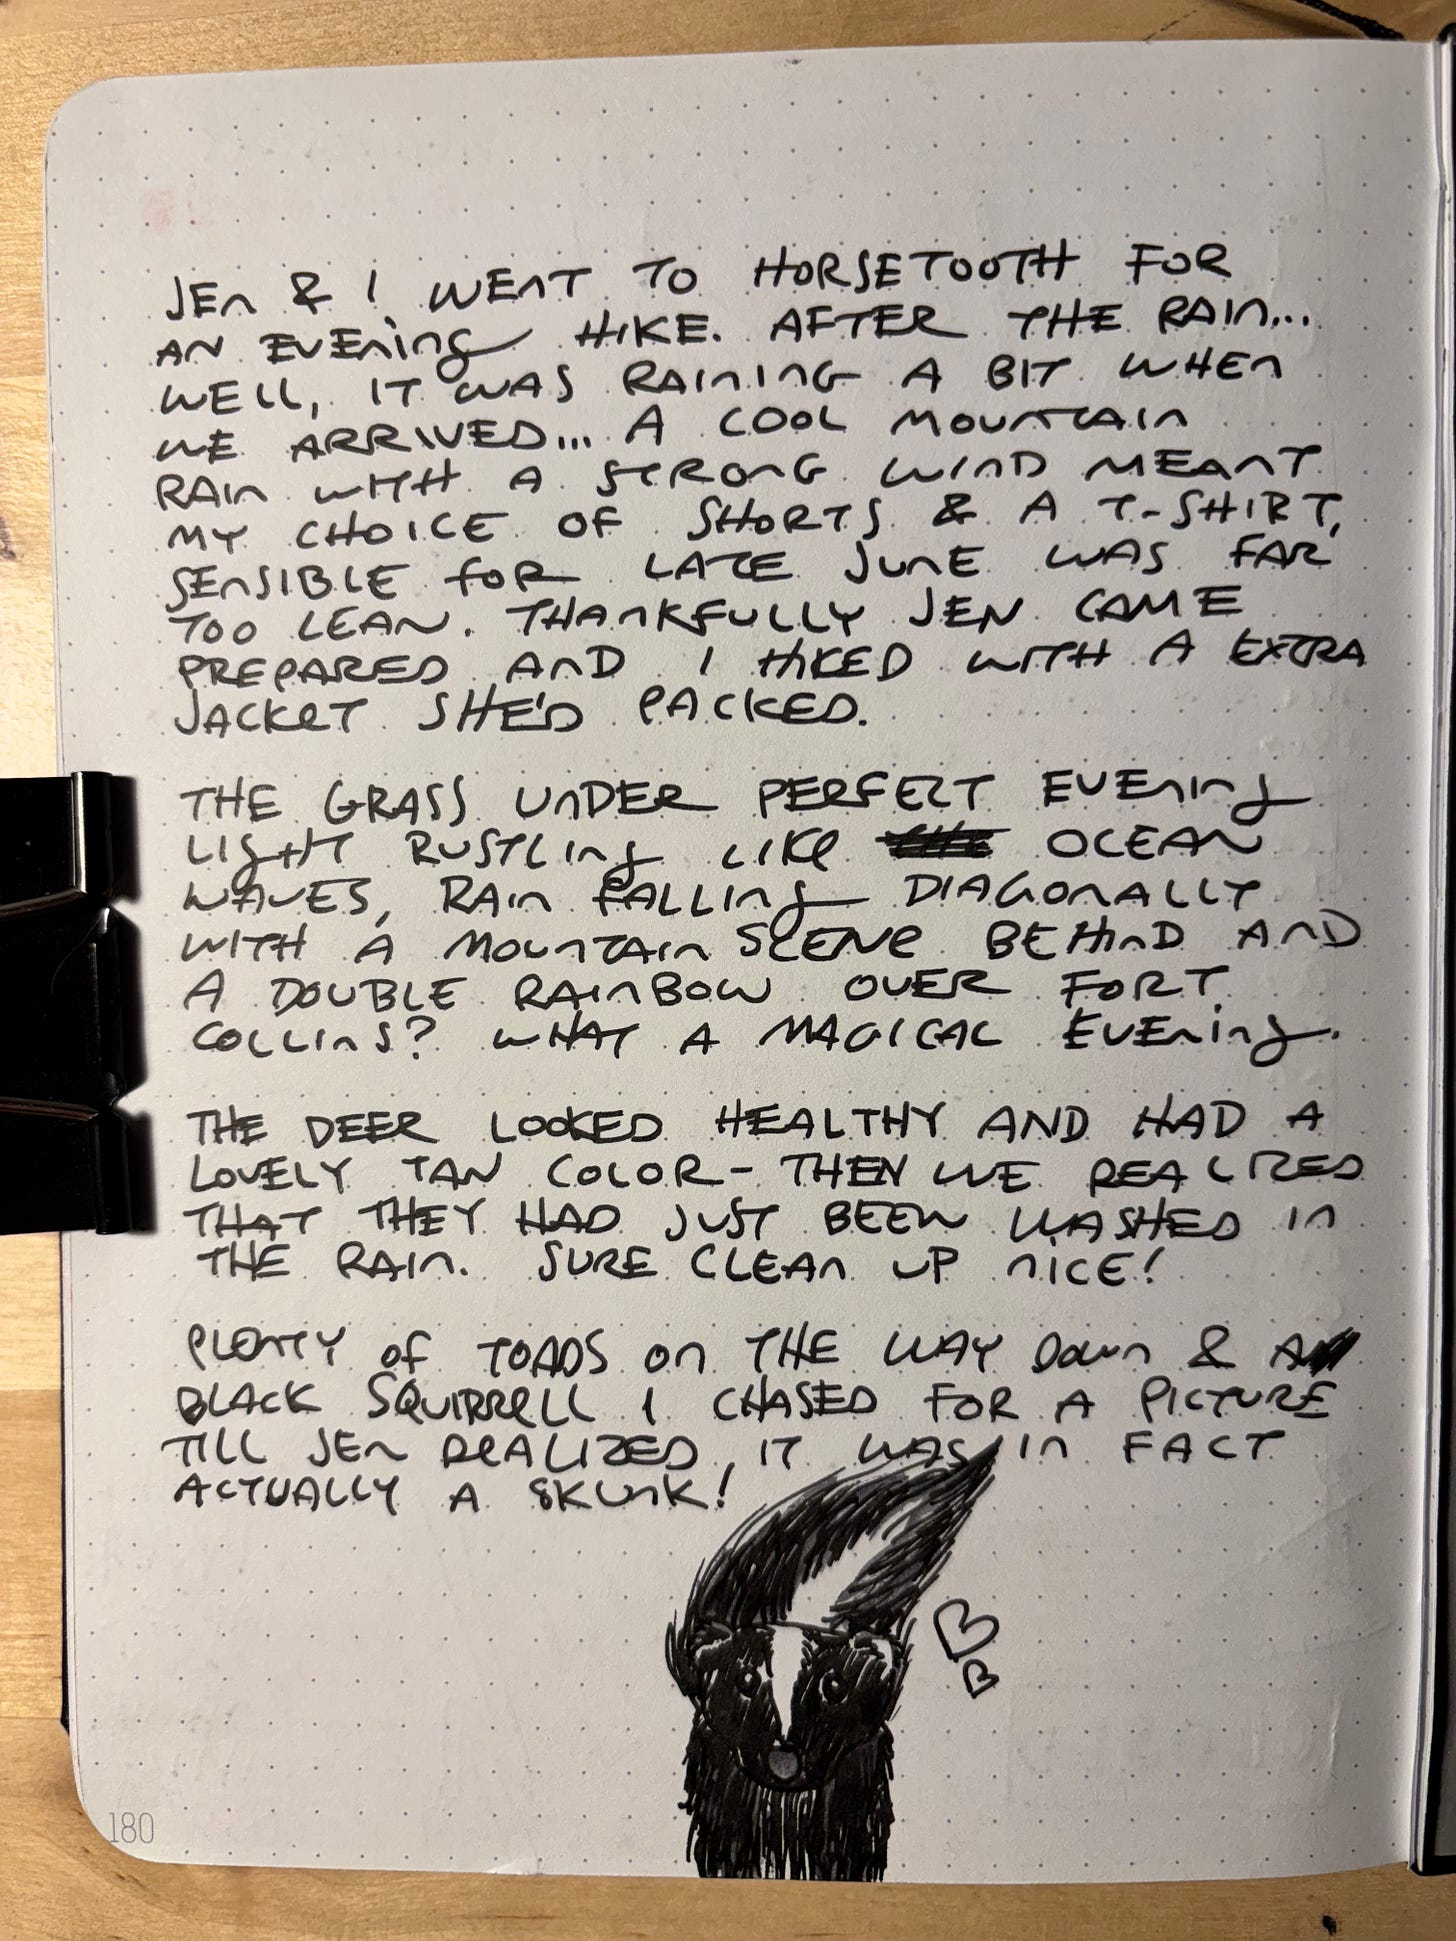 JEN & I WENT TO HORSETOOTH FOR
AN EVENING HIKE. AFTER THE RAIN...
WELL, IT WAS RAINING A BIT WHEN
WE ARRIVED... A COOL MOUNTAIN
RAIN WITH A STRONG WIND MEANT
MY CHOICE OF SHORTS & A T-SHIRT,
SENSIBLE FOR LATE JUNE WAS FAR
TOO LEAN. THANKFULLY JEN CAME
PREPARED AND I HIKED WITH A EXTRA
JACKET SHE'D PACKED.
THE GRASS UNDER PERFECT EVENING
LIGHT RUSTLING LIKE OCEAN
WAVES, RAIN FALLING DIAGONALLY
WITH A MOUNTAIN SCENE BEHIND AND
A DOUBLE RAINBOW OVER FORT
COLLINS? WHAT A MAGICAL EVENING.
THE DEER LOOKED HEALTHY AND HAD A
LOVELY TAN COLOR- THEN WE REALIZED
THAT THEY HAD JUST BEEN WASHED IN
THE RAIN. SURE CLEAN UP NICE!
PLENTY OF TOADS ON THE WAY DOWN & A
BLACK SQUIRRELL I CHASED FOR A PICTURE
TILL JEN REALIZED, IT WAS IN FACT
ACTUALLY A SKUNK!
180